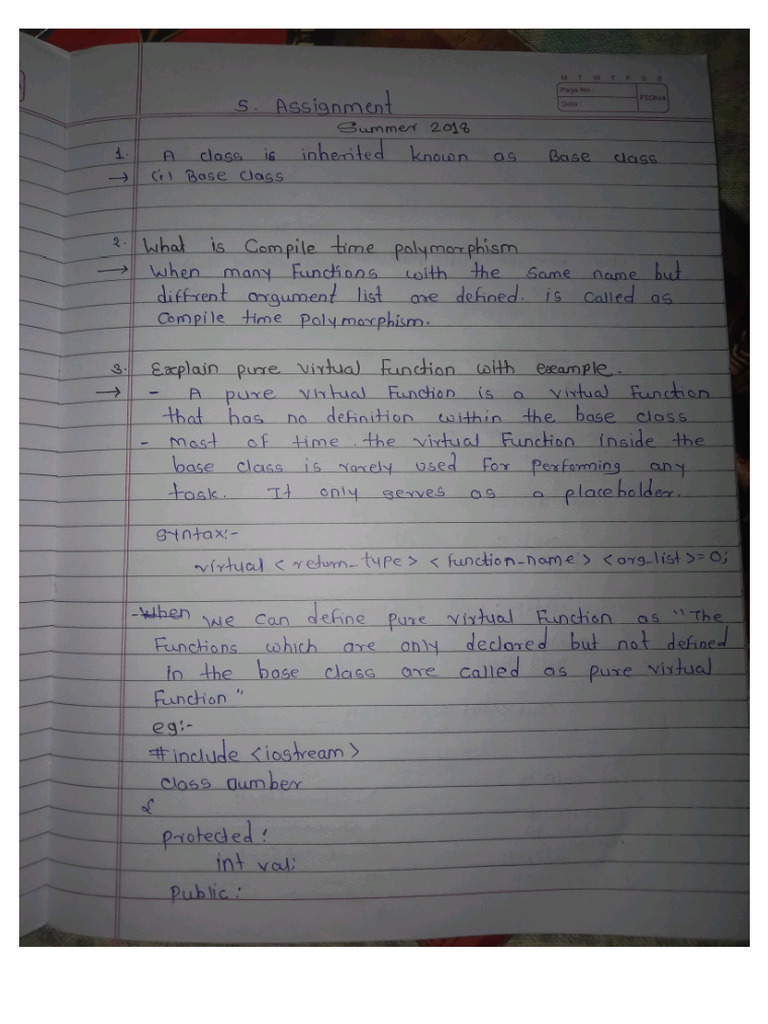 M T W T F S S
Page No.:
Date:
FIONA
5. Assignment
Summer 2018
1. A class is inherited known as Base class
→ (i) Base class
2. What is Compile time polymorphism
→ When many Functions with the same name but
diffrent argument list are defined. is called as
Compile time Polymorphism.
3. Explain pure virtual Function with example.
→ - A pure virtual Function is a virtual Function
that has no definition within the base class
- most of time the virtual Function inside the
base class is rarely used for performing any
task. It only serves as a placeholder.
Syntax:-
virtual <return_type> <function_name> <arg_list>=0;
- When we can define pure virtual Function as "The
Functions which are only declared but not defined
in the base class are called as pure virtual
Function"
eg:-
#include <iostream>
class number
{
protected:
int val;
Public: